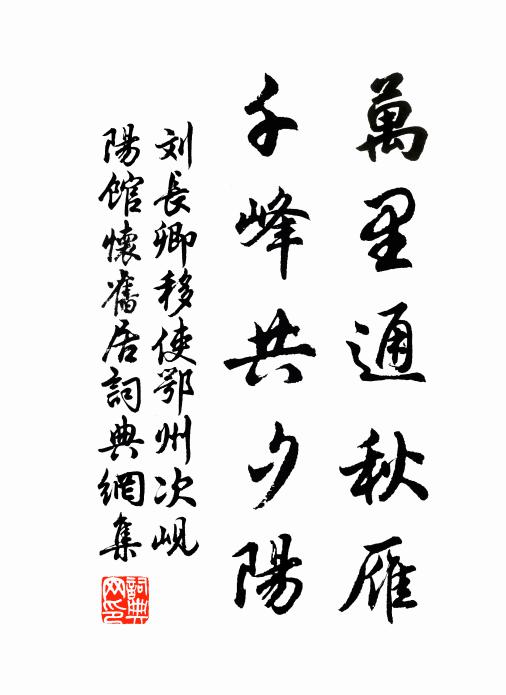 萬里通秋雁
千峰共夕陽
刘長卿移使鄂州次峴
陽館懷舊居詞典網集
詞典
网印